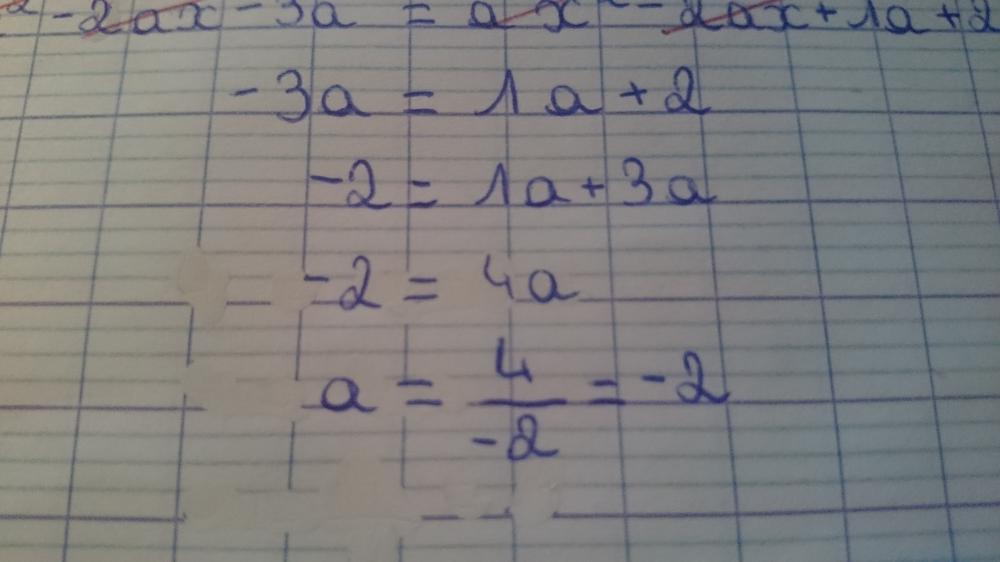 ² - 2ax - 3a = ax² - 2ax + 1a + 2
-3a = 1a + 2
-2 = 1a + 3a
-2 = 4a
a = 4/-2 = -2